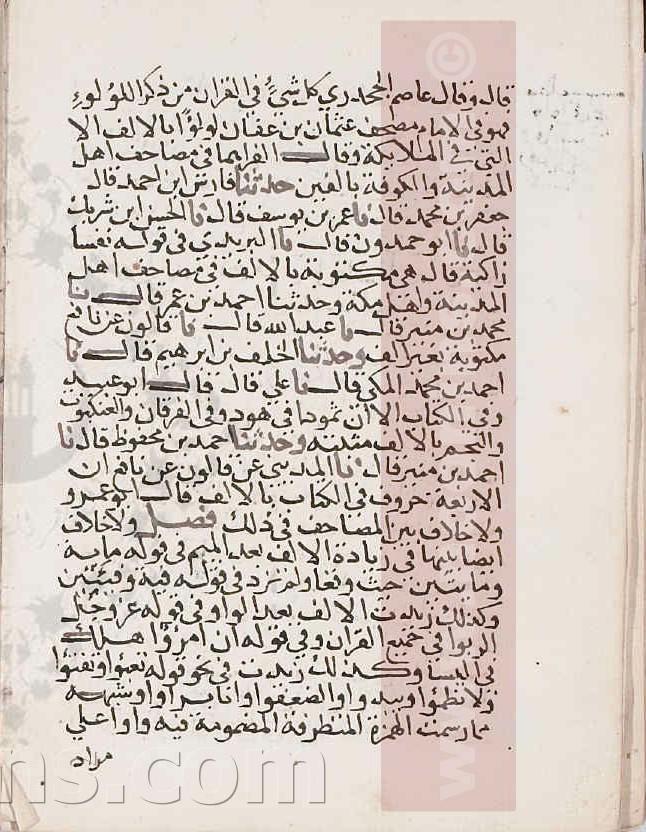 قال وقال عاصم الجحدري كل شيء في القران من ذكر اللولوء
فهو في الامام مصحف عثمان بن عفان لولوا بالالف الا
التي في الملايكة وقال الفرا هما في مصاحف اهل
المدينة والكوفة بالفين حدثنا فارس ابن احمد قال
جعفر بن محمد قال نا عمر بن يوسف قال نا الحسن ابن شريك
قال نا ابو حمدون قال نا اليزيدي في قوله نفسا
زاكية قال هي مكتوبة بالالف في مصاحف اهل
المدينة واهل مكة وحدثنا احمد بن عمر قال نا
محمد بن منير قال نا عبد الله قال نا قالون عن نافع
مكتوبة بغير الف وحدثنا الخلف بن ابرهيم قال نا
احمد بن محمد المكي قال نا علي قال قال ابو عبيد
وفي الكتاب الا ان ثمودا في هود وفي الفرقان والعنكبوت
والنجم بالالف مثبتة وحدثنا احمد بن محفوظ قال نا
احمد بن منير قال نا المدني عن قالون عن نافع ان
الاربعة حروف في الكتاب بالالف قال ابو عمرو
ولا خلاف بين المصاحف في ذلك فصل ولا خلاف
ايضا بينها في زيادة الالف بعد الميم في قوله ماية
ومايتين حيث وقعا ولم تزد في قوله فية وفيتين
وكذلك زيدت الالف بعد الواو في قوله عز وجل
الربوا في جميع القران وفي قوله ان امرؤا هلك
في النسا وكذلك زيدت في نحو قوله تفتؤا
ولا تظمؤا ويبدوا والضعفوا وانا براوا وشبهه
مما رسمت الهمزة المتطرفة المضمومة فيه واوا على
مراد
ns.com
www
©